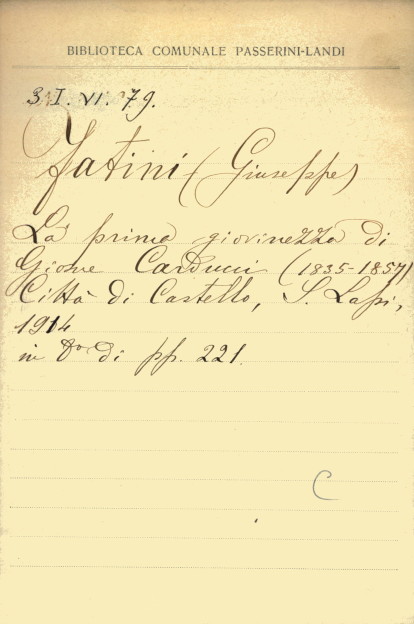 BIBLIOTECA COMUNALE PASSERINI-LANDI
3. I. VI. 79.
Fatini (Giuseppe)
La prima giovinezza di
Giosue Carducci (1835-1857)
Città di Castello, S. Lapi,
1914
in 8° di pp. 221.
C